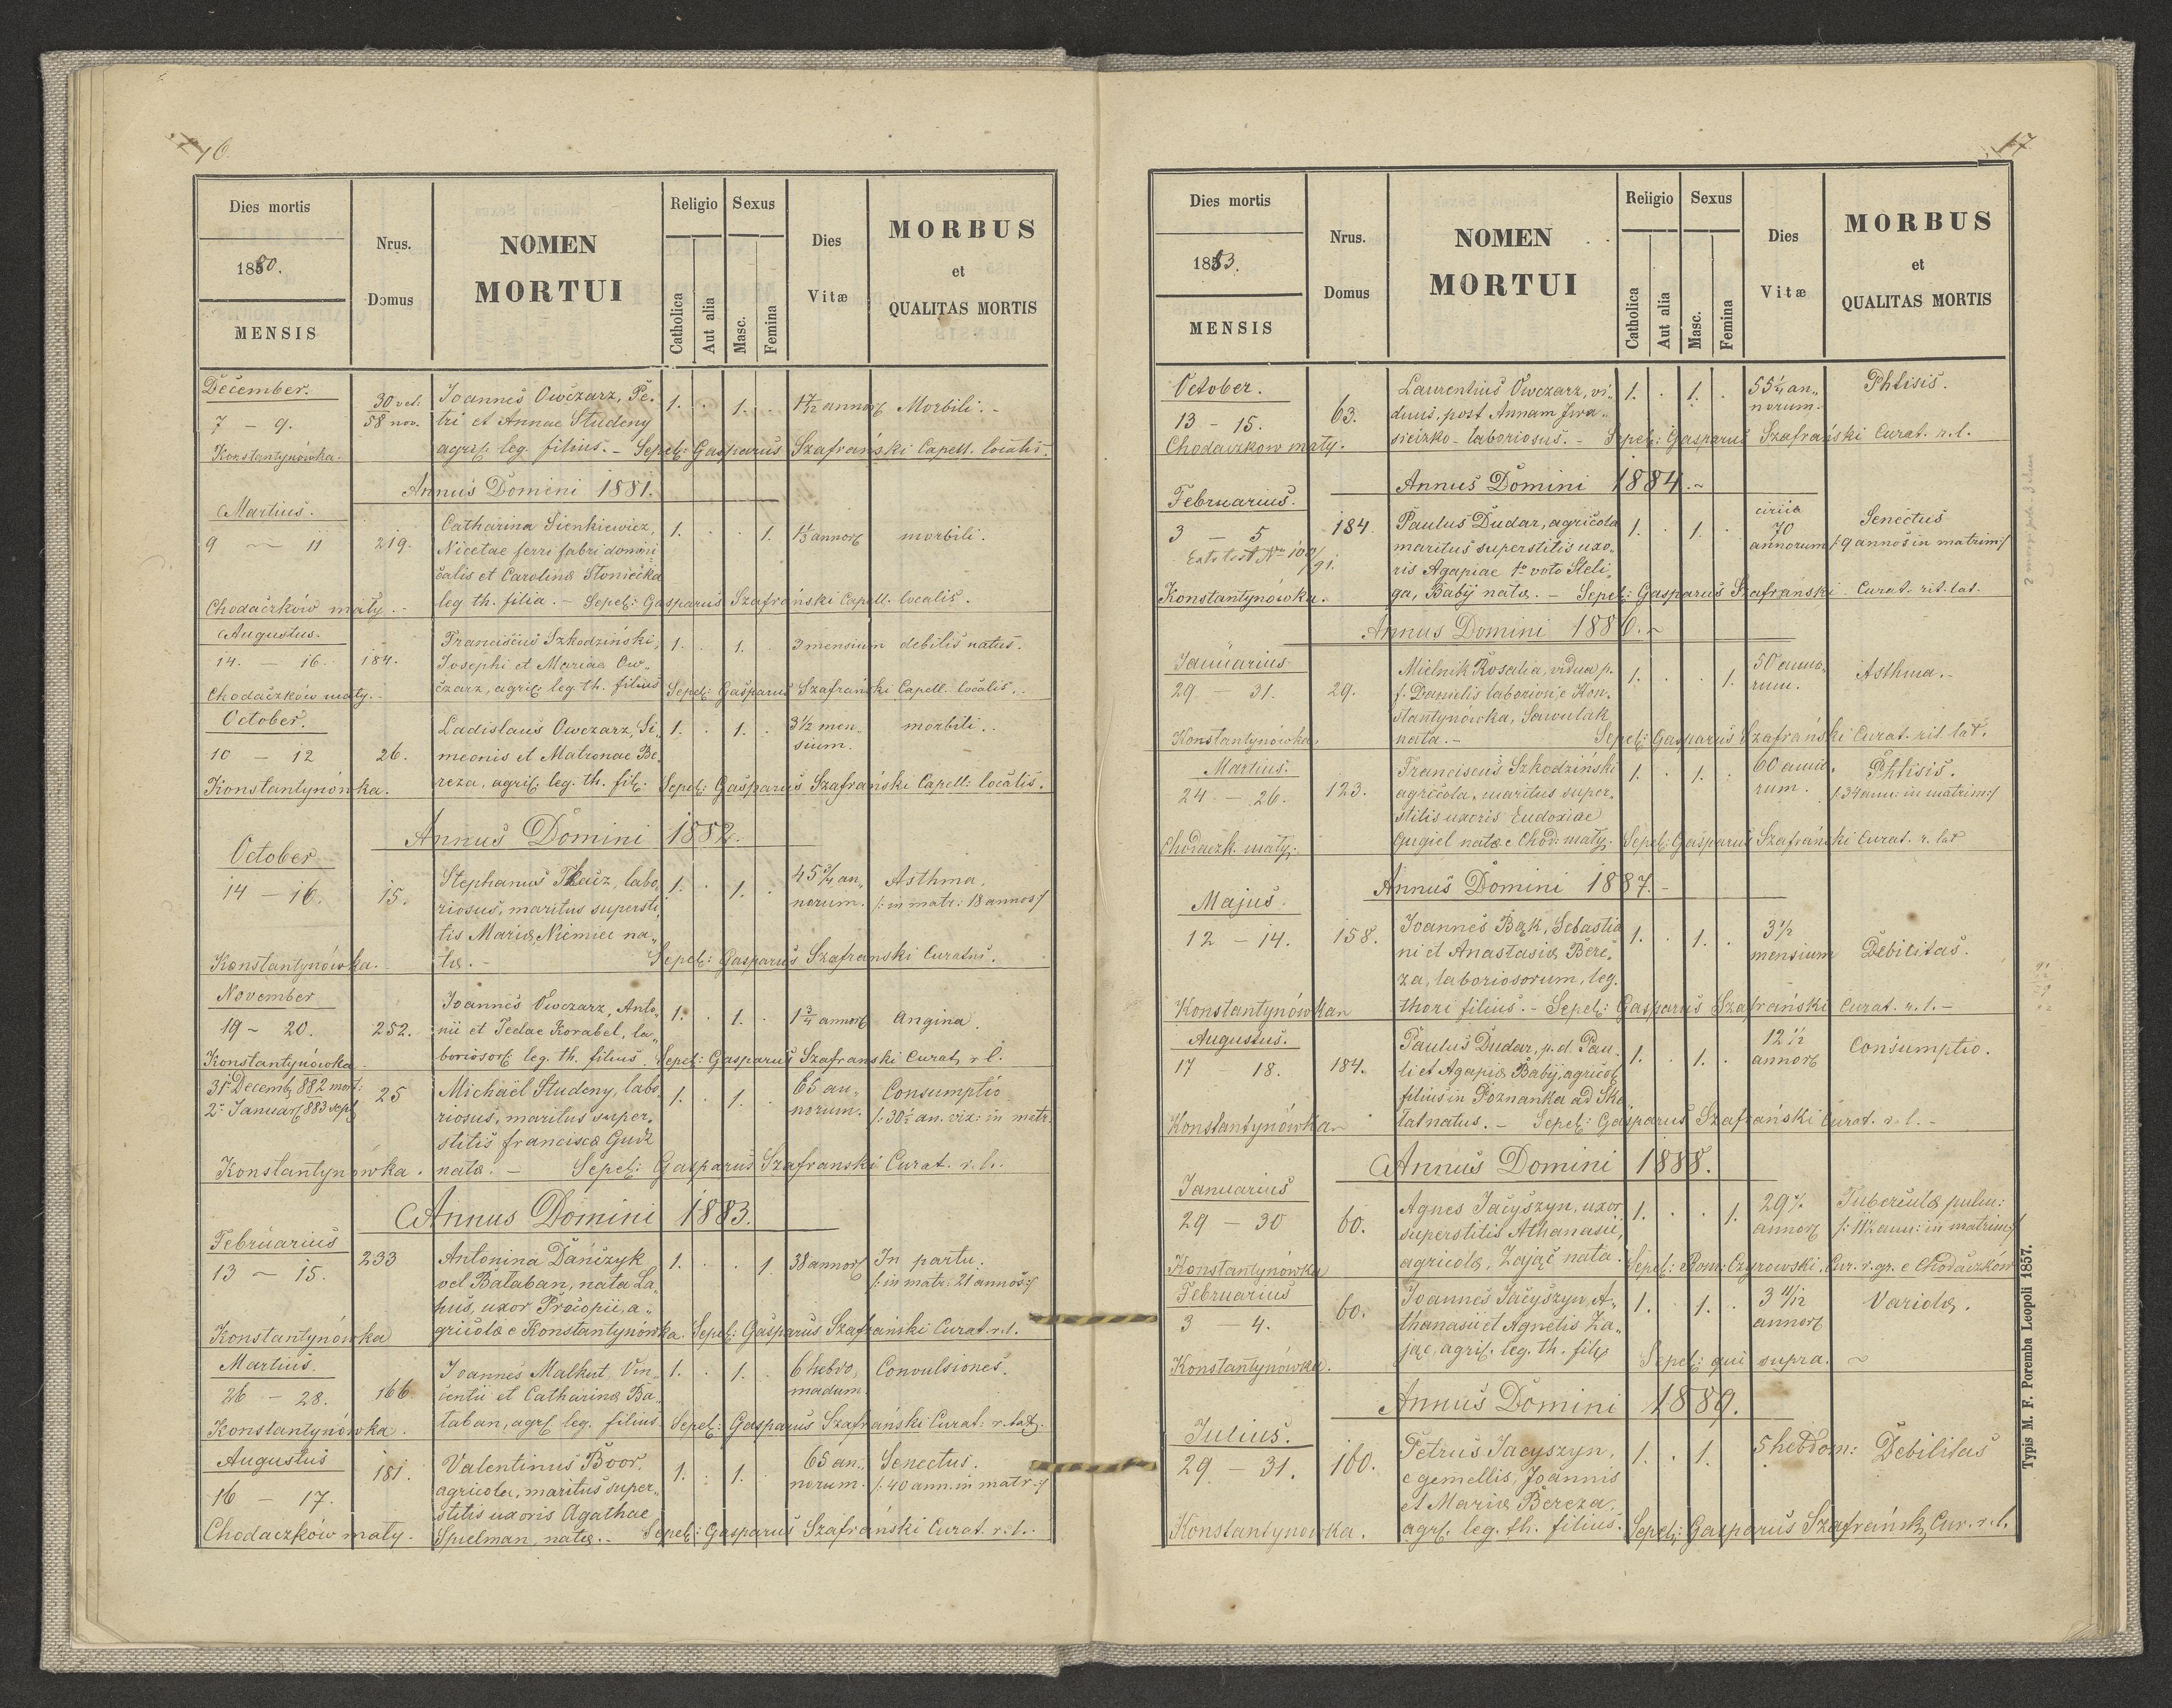 16
Dies mortis
1880.
MENSIS
Nrus.
Domus
NOMEN
MORTUI
Religio
Catholica
Aut alia
Sexus
Masc.
Femina
Dies
Vitæ
MORBUS
et
QUALITAS MORTIS
December.
7 – 9.
Konstantynówka.
30 vet.
58 nov.
Joannes Owczarz, Pe„
tri et Annae Studeny
agric. leg. filius. – Sepel: Gasparus Szafrański Capell. localis.
1. . 1. .
annor
Morbili. –
Annus Domini 1881.
Martius.
9 – 11
Chodaczków mały. –
219.
Catharina Sienkiewicz,
Nicetae ferri fabri domini
calis et Carolinæ Słoniecka
leg th. filia. – Sepel: Gasparus Szafrański Capell. localis.
1. . . 1.
1⅓ annor
morbili.
Augustus.
14. – 16.
Chodaczków mały. –
184.
Franciscus Szkodziński,
Josephi et Mariae Ow„
czarz, agric. leg. th. filius Sepel: Gasparus Szafrański Capell. localis. .
1. . 1. .
3 mensium
debilis natus.
October.
10 – 12
Konstantynówka.
26.
Ladislaus Owczarz, Si„
meonis et Matronae Be„
reza, agric. leg. th. fil: Sepel: Gasparus Szafrański Capell: localis.
1. . 1. .
3½ men„
sium.
morbili. .
Annus Domini 1882.
October
14 – 16.
Konstantynówka. –
15.
Stephanus Tkacz, labo„
riosus, maritus supersti„
tis Mariæ Niemiec na„
tæ. – Sepel: Gasparus Szafranski Curatus.
1. . 1. .
45¾ an„
norum.
Asthma,
/: in matr: 18 annos :/
November
19 – 20.
Konstantynówka
252.
Joannes Owczarz, Anto„
nii et Teclae Korabel, la„
boriosor: leg. th. filius. Sepel: Gasparus Szafranski Curat, r l.
1. . 1. .
1¾ annor
Angina.
31 Decemb 882 mort:
2 Januar 883 sepel
Konstantynowka.
25
Michaël Studeny, labo„
riosus, maritus super„
stitis franciscæ Gudz
natæ. – Sepel: Gasparus Szafranski Curat. r. l.
1. . 1. .
65 an„
norum.
Consumptio
/: 30½ an. vix: in matr.
Annus Domini 1883.
Februarius
13 – 15.
Konstantynówka
233
Antonina Dańczyk
vel Bałaban, nata La„
hus, uxor Procopii, a„
gricolæ e Konstantynówka. Sepel: Gasparus Szafrański Curat. r. l.
1. . . 1.
38 annor
In partu.
/: in matr: 21 annos :/
Martius.
26 – 28.
Konstantynówka.
166
Joannes Malkut, Vin„
centii et Catharinæ Ba„
łaban, agr. leg. filius. Sepel: Gasparus Szafrański Curat: r. lat.
1. . 1. .
6 hebdo„
madum.
Convulsiones.
Augustus
16 – 17.
Chodaczków mały.
181.
Valentinus Boor,
agricola, maritus super„
stitis uxoris Agathae
Spielman, natæ. – Sepel: Gasparus Szafrański Curat. r. l.
1. . 1. .
65 an„
norum.
Senectus.
/: 40 ann. in matr :/
17
Dies mortis
1883.
MENSIS
Nrus.
Domus
NOMEN
MORTUI
Religio
Catholica
Aut alia
Sexus
Masc.
Femina
Dies
Vitæ
MORBUS
et
QUALITAS MORTIS
October.
13 – 15.
Chodaczkow mały.
63.
Laurentius Owczarz, vi„
duus, post Annam Iwa„
sieczko – laboriosus. – Sepel: Gasparus Szafrański Curat. r. l.
1. . 1. .
55¼ an„
norum.
Phtisis.
Annus Domini 1884. ~
Februarius.
3 – 5
Konstantynówka.
184
Paulus Dudar, agricola
maritus superstitis uxo„
ris Agapiae 1º voto Steli„
ga, Babij natæ. – Sepel: Gasparus Szafrański Curat. rit. lat.
1. . 1. .
circa
70
annorum
Senectus
/: 9 annos in matrim :/
Annus Domini 1886. ~
Januarius
29 31.
Konstantynówka.
29.
Mielnik Rosalia, vidua p.
f. Danielis laboriosi, e Kon„
stantynówka, Sawulak
nata. – Sepel: Gasparus Szafrański Curat. rit. lat.
1. . . 1.
50 anno„
rum.
Asthma. –
Martius.
24 – 26.
Chodaczk. mały.
123.
Franciscus Szkodziński
agricola, maritus super„
stitis uxoris Eudoxiae
Gugiel natæ e Chod: mały. Sepel: Gasparus Szafrański Curat. r. lat
1. . 1. .
60 anno„
rum.
Phtisis.
/: 34 ann: in matrim :/
Annus Domini 1887. –
Majus.
12 – 14.
Konstantynówka
158.
Joannes Bąk, Sebastia
ni et Anastasiæ Bere„
za, laboriosorum, leg.
thori filius. – Sepel: Gasparus Szafrański Curat. r. l. –
1. . 1. .
3½
mensium
Debilitas.
Augustus.
17 – 18.
Konstantynówka
184.
Paulus Dudar, p. d. Pau„
li et Agapiæ Babij, agricol
filius in Poznanka ad Ska„
łat natus. – Sepel: Gasparus Szafrański Curat. r. l. –
1. . 1. .
12½
annor
Consumptio.
Annus Domini 1888.
Januarius
29 – 30
Konstantynówka
60.
Agnes Jacyszyn, uxor
superstitis Athanasii,
agricolæ, Zając nata. Sepel: Rom: Czyrowski, Cur. r. gr. e Chodaczków
1. . . 1.
annor
Tuberculæ pulm:
/: 11½ ann: in matrim :/
Februarius
3 – 4.
Konstantynówka.
60.
Joannes Jacyszyn, A„
thanasii et Agnetis Za„
jąc, agric. leg. th. filius Sepel: qui supra. ~
1. . 1. .
3 11/12
annor
Variolæ.
Annus Domini 1889.
Julius.
29 – 31.
Konstantynowka.
160.
Petrus Jacyszyn,
e gemellis, Joannis
et Mariæ Bereza,
agr. leg. th. filius. Sepel: Gasparus Szafrański, Cur. r. l.
1. . 1.
5 hebdom:
Debilitas
Typis M. F. Poremba Leopoli 1857.